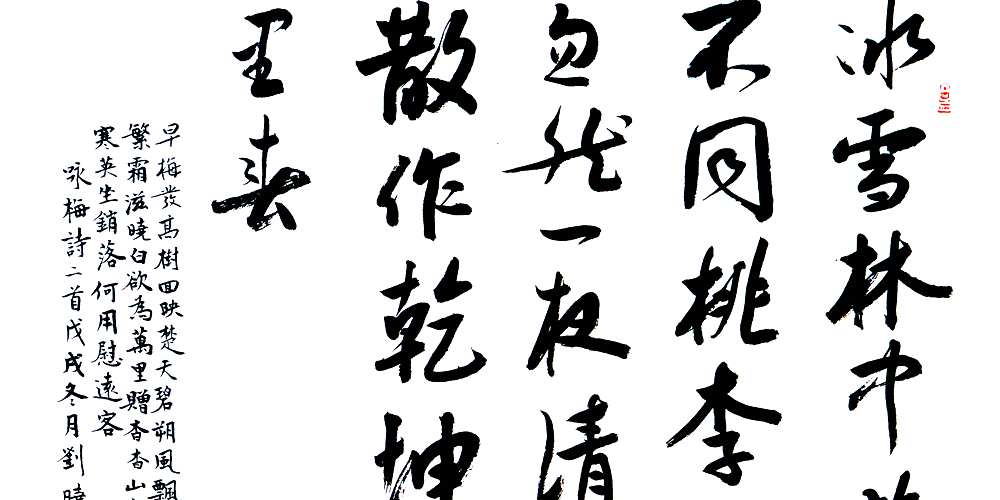 冰雪林中
不同桃李
忽然一夜清
散作乾坤
里春
早梅發高樹回映楚天碧朔風飄
繁霜滋曉白欲為萬里贈杳杳山
寒英坐銷落何用慰遠客
咏梅詩二首戊戌冬月劉